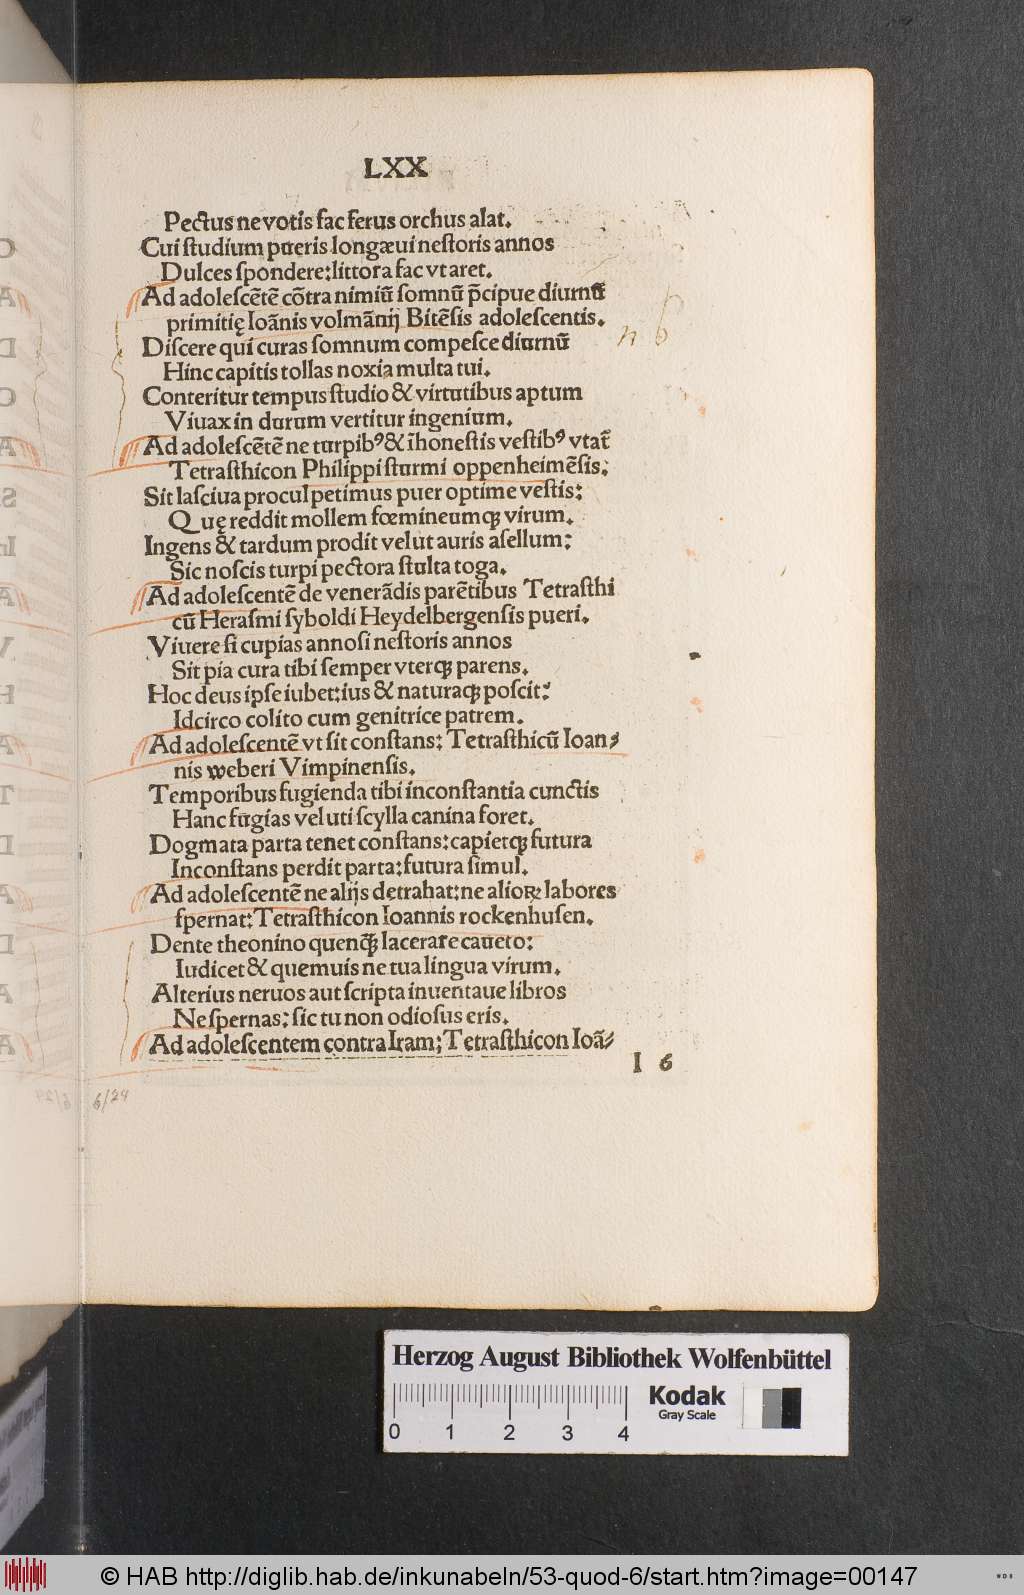 LXX
Pectus ne votis fac ferus orchus alat.
Cui ſtudium pueris longæui neſtoris annos
Dulces ſpondere: littora fac vt aret.
Ad adoleſcētē cōtra nimiū ſomnū p̄cipue diurnū
primitię Ioānis volmānij Bitēſis adoleſcentis.
Diſcere qui curas ſomnum compeſce diurnū
Hinc capitis tollas noxia multa tui.
Conteritur tempus ſtudio & virtutibus aptum
Viuax in durum vertitur ingenium.
Ad adoleſcētē ne turpibꝰ & īhoneſtis veſtibꝰ vtat᷑
Tetraſthicon Philippi ſturmi oppenheimēſis:
Sit laſciua procul petimus puer optime veſtis:
Quę reddit mollem fœmineumqꝫ virum.
Ingens & tardum prodit velut auris aſellum:
Sic noſcis turpi pectora ſtulta toga.
Ad adoleſcentē de venerādis parētibus Tetraſthi
cū Heraſmi ſyboldi Heydelbergenſis pueri.
Viuere ſi cupias annoſi neſtoris annos
Sit pia cura tibi ſemper vterqꝫ parens.
Hoc deus ipſe iubet: ius & naturaqꝫ poſcit:
Idcirco colito cum genitrice patrem.
Ad adoleſcentē vt ſit conſtans: Tetraſthicū Ioan⸗
nis weberi Vimpinenſis.
Temporibus fugienda tibi inconſtantia cunctis
Hanc fugias vel uti ſcylla canina foret.
Dogmata parta tenet conſtans: capietqꝫ futura
Inconſtans perdit parta: futura ſimul.
Ad adoleſcentē ne alijs detrahat: ne alioꝝ labores
ſpernat: Tetraſthicon Ioannis rockenhuſen.
Dente theonino quenqꝫ̄ lacerare caueto:
Iudicet & quemuis ne tua lingua virum.
Alterius neruos aut ſcripta inuentaue libros
Ne ſpernas: ſic tu non odioſus eris.
Ad adoleſcentem contra Iram: Tetraſthicon Ioā⸗
I 6
n b
6/24
Herzog August Bibliothek Wolfenbüttel
Kodak
Gray Scale
0 1 2 3 4
© HAB http://diglib.hab.de/inkunabeln/53-quod-6/start.htm?image=00147